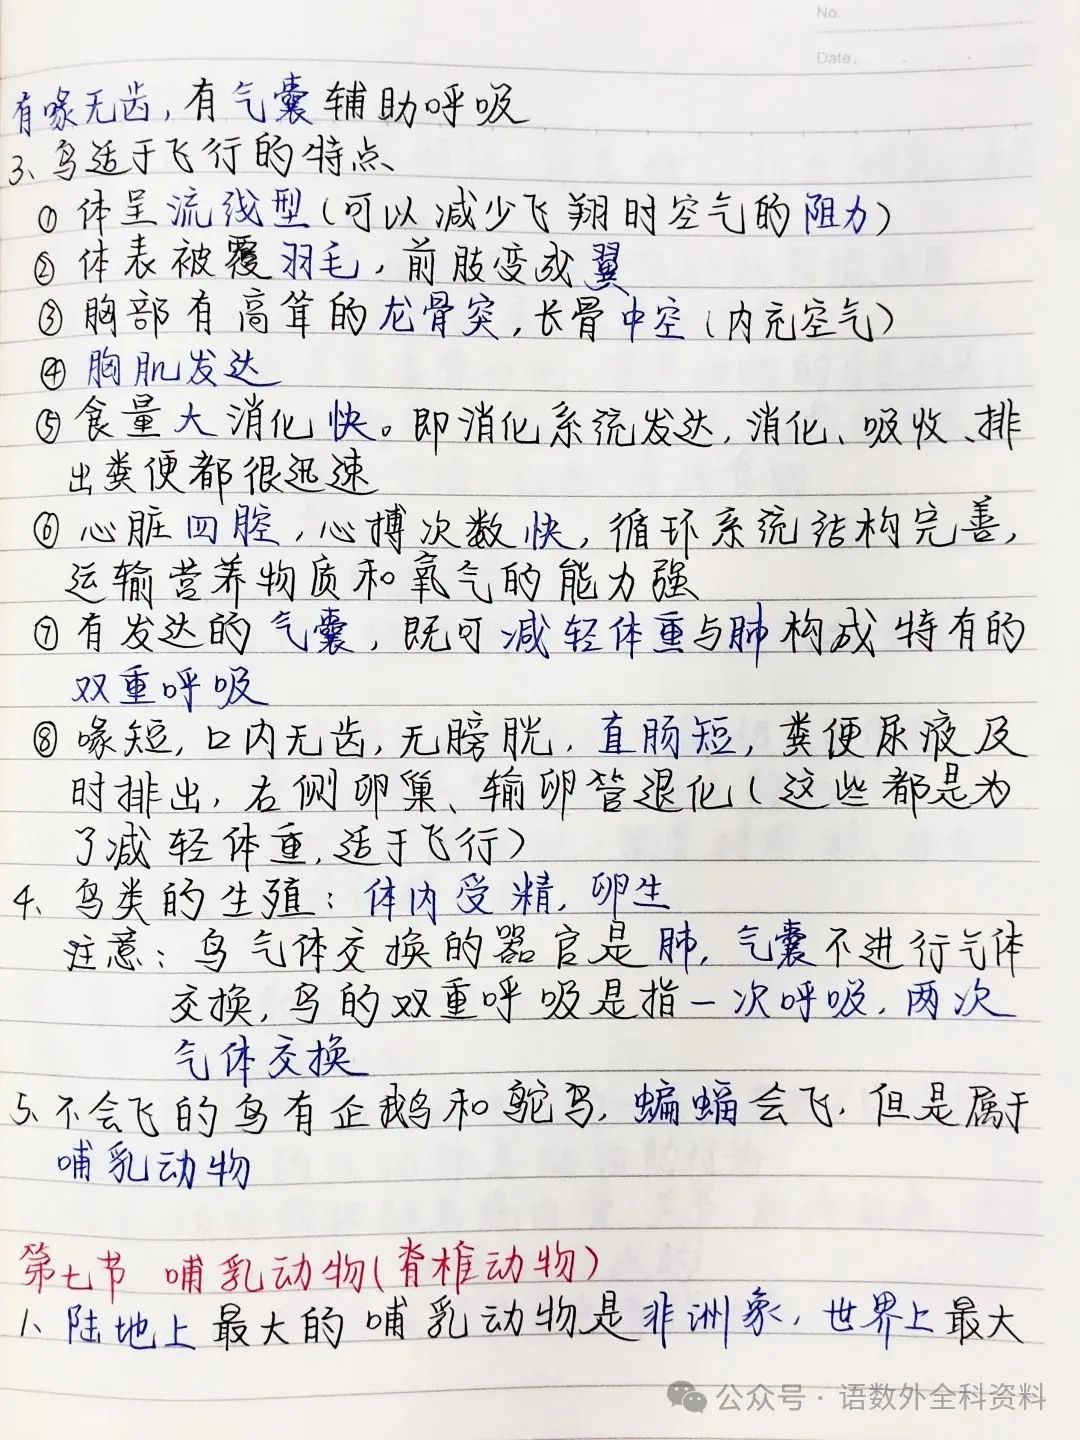 No.
Date.
有喙无齿,有气囊辅助呼吸
3、鸟适于飞行的特点
① 体呈流线型(可以减少飞翔时空气的阻力)
② 体表被覆羽毛,前肢变成翼
③ 胸部有高耸的龙骨突,长骨中空(内充空气)
④ 胸肌发达
⑤ 食量大消化快。即消化系统发达,消化、吸收、排
出粪便都很迅速
⑥ 心脏四腔,心搏次数快,循环系统结构完善,
运输营养物质和氧气的能力强
⑦ 有发达的气囊,既可减轻体重与肺构成特有的
双重呼吸
⑧ 喙短,口内无齿,无膀胱,直肠短,粪便尿液及
时排出,右侧卵巢、输卵管退化(这些都是为
了减轻体重,适于飞行)
4、鸟类的生殖:体内受精,卵生
注意:鸟气体交换的器官是肺,气囊不进行气体
交换,鸟的双重呼吸是指一次呼吸,两次
气体交换
5、不会飞的鸟有企鹅和鸵鸟,蝙蝠会飞,但是属于
哺乳动物
第七节 哺乳动物(脊椎动物)
1、陆地上最大的哺乳动物是非洲象,世界上最大
公众号·语数外全科资料